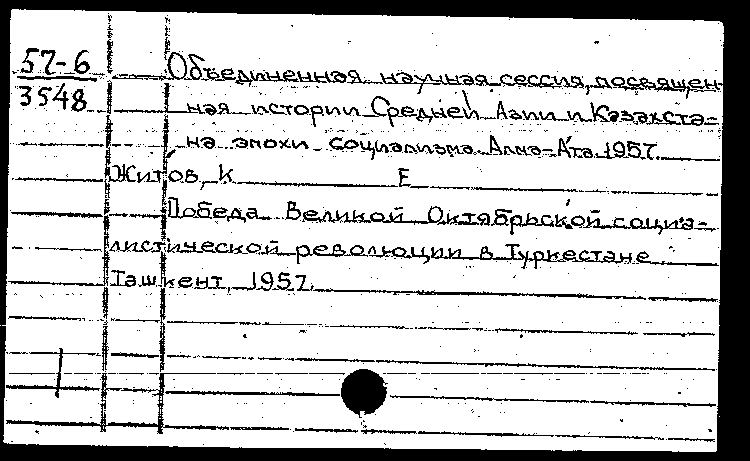 57-6
3548
Объединенная научная сессия, посвящен-
ная истории Средней Азии и Казахста-
на эпохи социализма. Алма-Ата. 1957
Житов, К Е
Победа Великой Октябрьской социа-
листической революции в Туркестане
Ташкент, 1957.